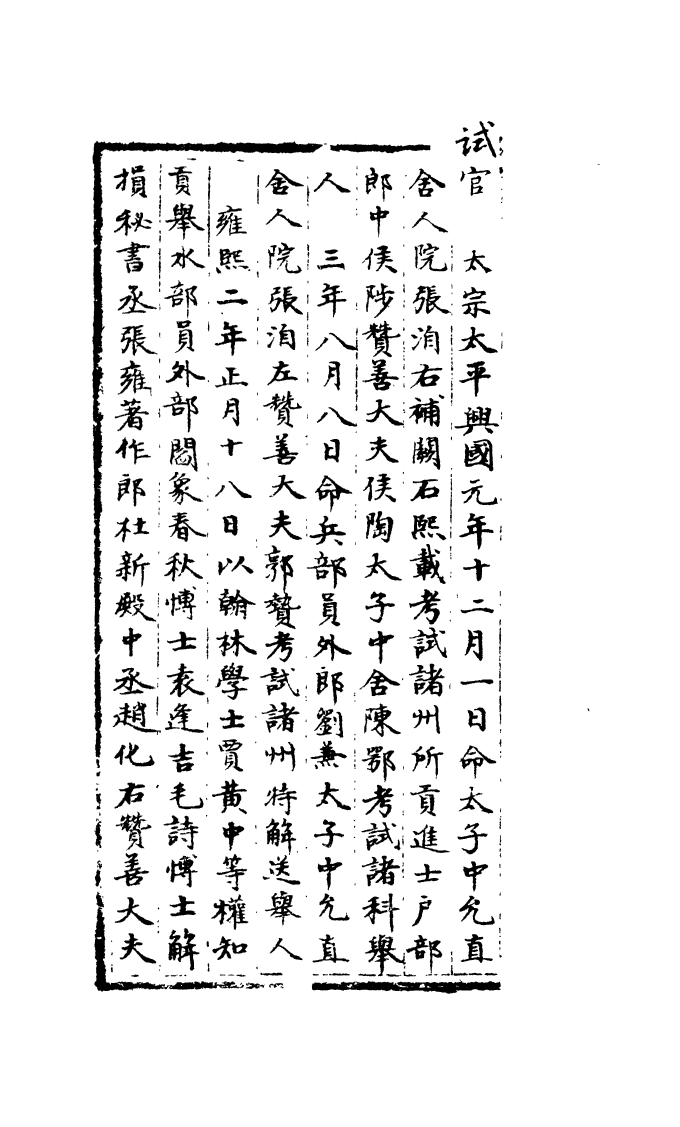 試官　太宗太平興國元年十二月一日命太子中允直
舍人院張洎右補闕石熙載考試諸州所貢進士戶部
郎中侯陟贊善大夫侯陶太子中舍陳鄂考試諸科舉
人　三年八月八日命兵部員外郎劉兼太子中允直
舍人院張洎左贊善大夫郭贊考試諸州特解送舉人
雍熙二年正月十八日以翰林學士賈黃中等權知
貢舉水部員外部閻象春秋愽士袁逢吉毛詩愽士解
損秘書丞張雍著作郎杜新殿中丞趙化右贊善大夫